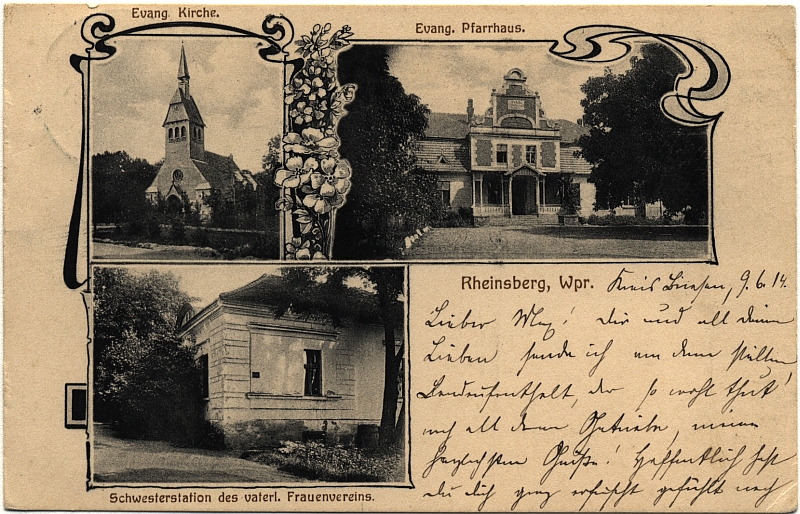 Evang. Kirche.
Evang. Pfarrhaus.
Rheinsberg, Wpr. Kreis Briesen, 9.6.14.
Lieber Max! Dir und all deinen
Lieben sende ich von dem stillen
Landaufenthalt, der so wohl thut
nach all dem Getriebe, meine
herzlichsten Grüße! Hoffentlich hast
du dich ganz erfrischt gefühlt nach
Schwesterstation des vaterl. Frauenvereins.